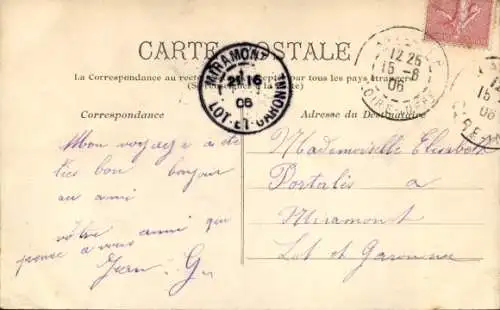 CARTE POSTALE
La Correspondance au recto pas acceptée par tous les pays étrangers
(Se à la Poste)
Correspondance
Adresse du Destinataire
MIRAMONT
21 16
06
LOT-ET-GARONNE
12 25
15 - 8
06
LOIRE-INFRE
12
15
06
Mon voyage a été
très bon bonjour
au ami
votre ami qui
pense a vous
Jean G.
Mademoiselle Elisabeth
Portalis a
Miramont
Lot et Garonne